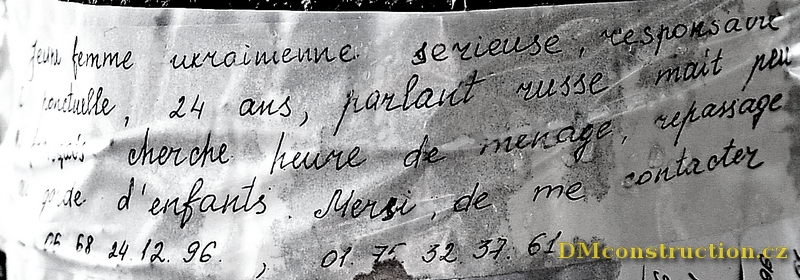 Jeune femme ukrainienne serieuse, responsavle
ponctuelle, 24 ans, parlant russe mait peu
français cherche heure de menage, repassage
garde d'enfants. Mersi, de me contacter
06 68 24.12.96. , 01.75 32.37.61
DMconstruction.cz